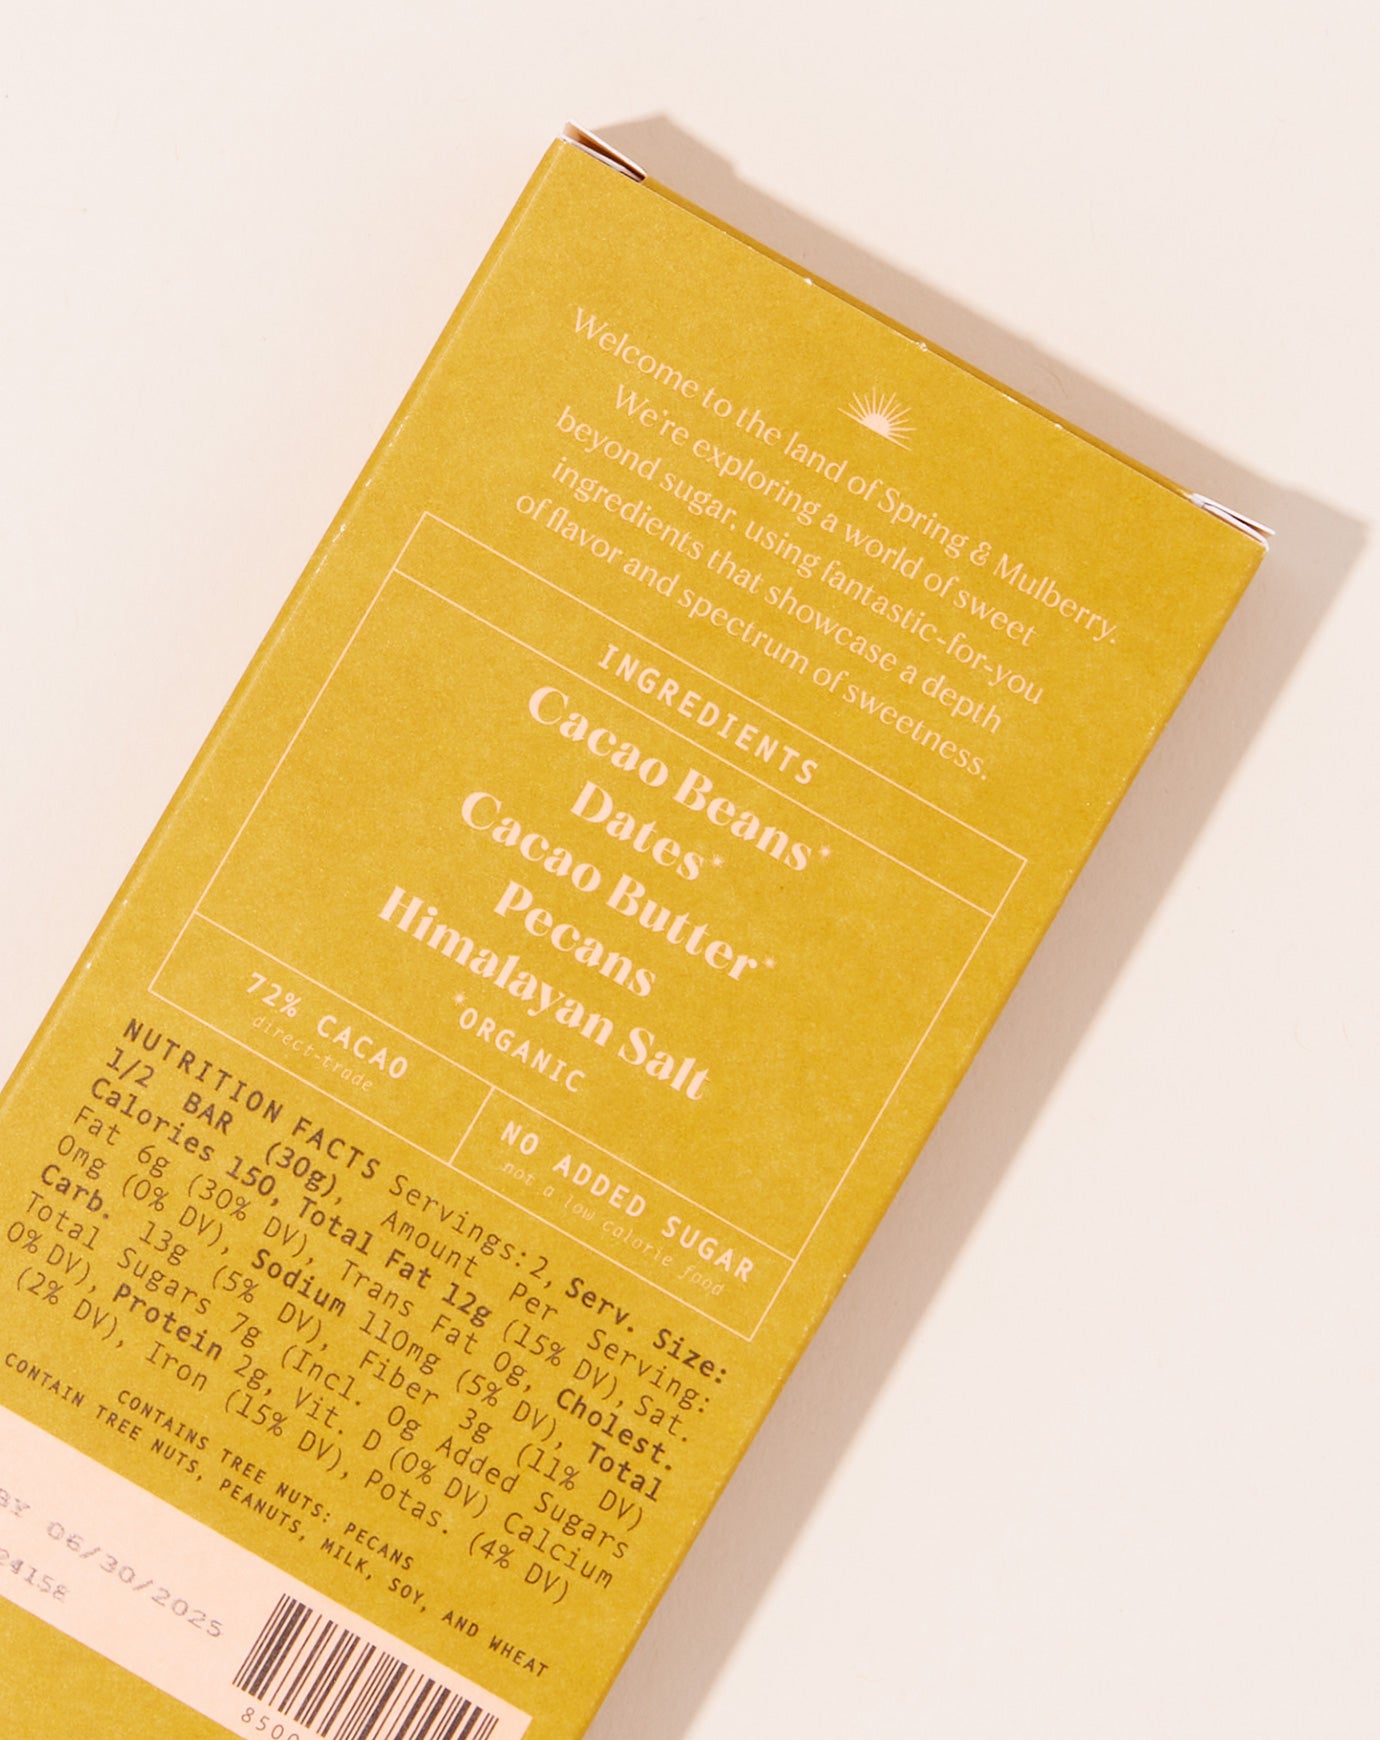 Welcome to the land of Spring & Mulberry.
We're exploring a world of sweet
beyond sugar, using fantastic-for-you
ingredients that showcase a depth
of flavor and spectrum of sweetness.
INGREDIENTS
Cacao Beans*
Dates*
Cacao Butter*
Pecans
Himalayan Salt
*ORGANIC
72% CACAO
direct-trade
NO ADDED SUGAR
not a low calorie food
NUTRITION FACTS Servings: 2, Serv. Size:
1/2 BAR (30g), Amount Per Serving:
Calories 150, Total Fat 12g (15% DV), Sat.
Fat 6g (30% DV), Trans Fat 0g, Cholest.
0mg (0% DV), Sodium 110mg (5% DV), Total
Carb. 13g (5% DV), Fiber 3g (11% DV)
Total Sugars 7g (Incl. 0g Added Sugars
0% DV), Protein 2g, Vit. D (0% DV) Calcium
(2% DV), Iron (15% DV), Potas. (4% DV)
CONTAINS TREE NUTS: PECANS
CONTAIN TREE NUTS, PEANUTS, MILK, SOY, AND WHEAT
BY 06/30/2025
2415E
8500